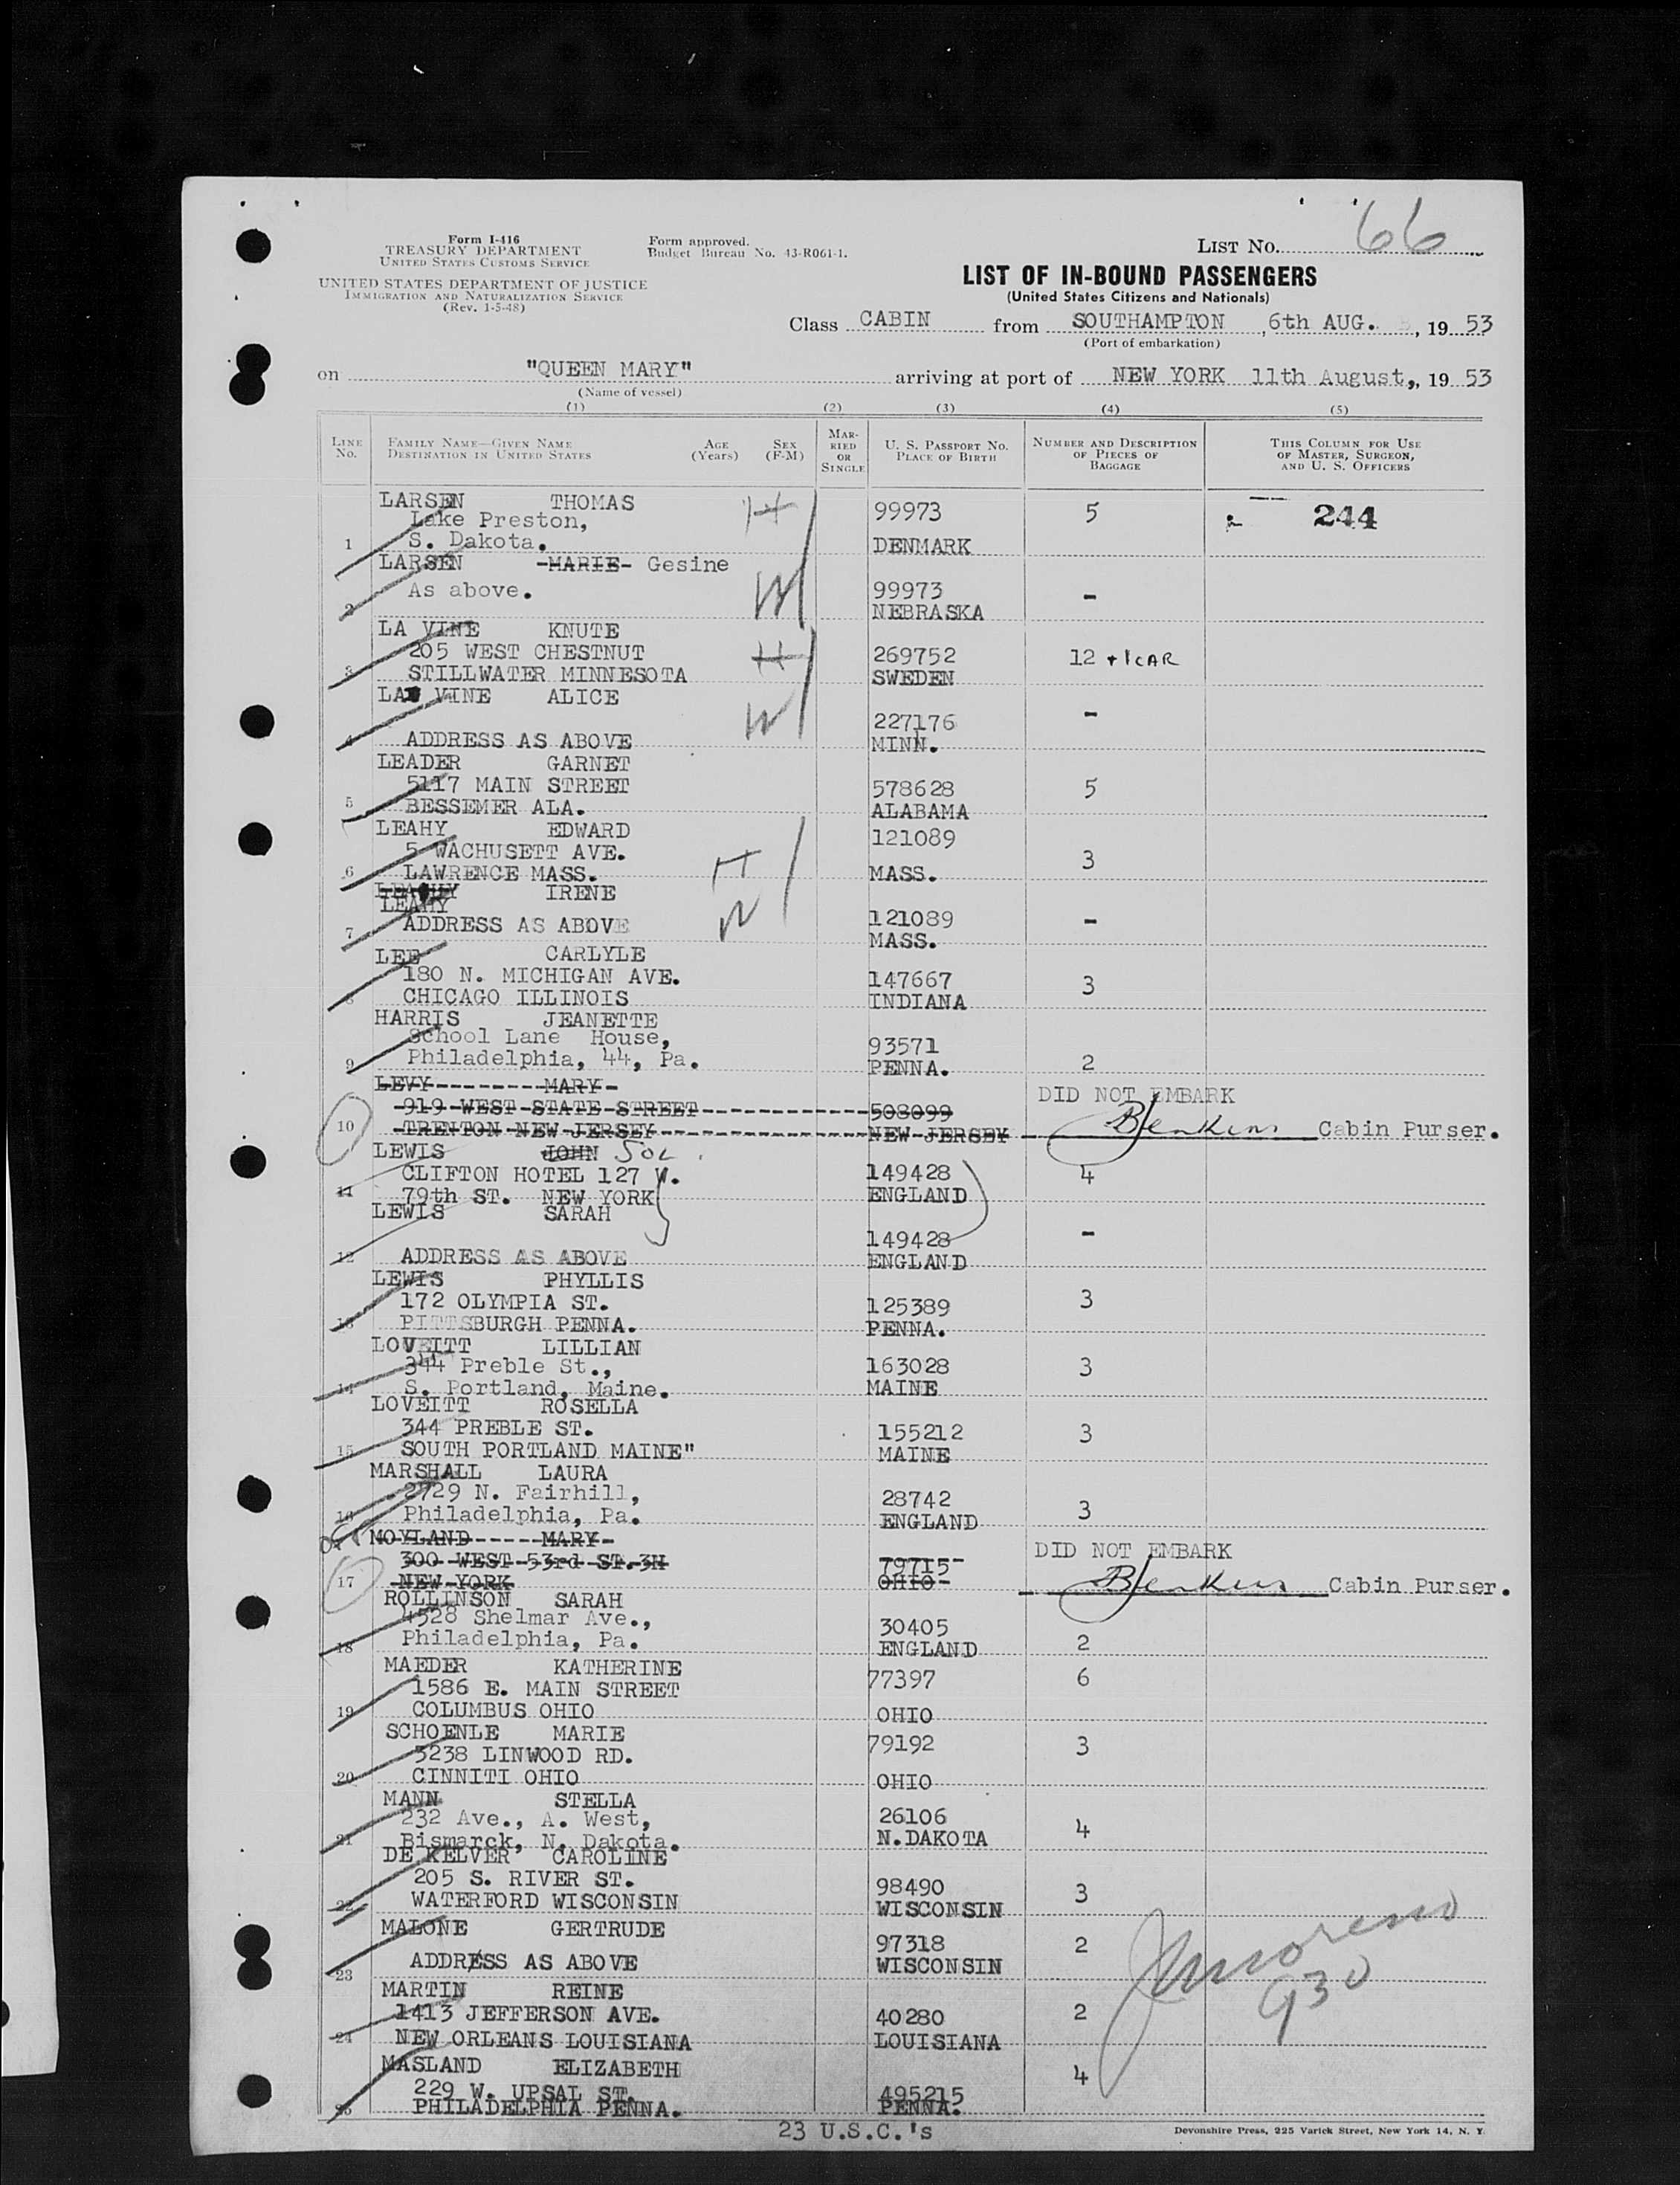 Form I-416
TREASURY DEPARTMENT
UNITED STATES CUSTOMS SERVICE
UNITED STATES DEPARTMENT OF JUSTICE
IMMIGRATION AND NATURALIZATION SERVICE
(Rev. 1-5-48)
Form approved.
Budget Bureau No. 43-R061-1.
LIST NO. 66
LIST OF IN-BOUND PASSENGERS
(United States Citizens and Nationals)
Class CABIN from SOUTHAMPTON, 6th AUG., 19 53
(Port of embarkation)
on "QUEEN MARY" arriving at port of NEW YORK 11th August, 19 53
(Name of vessel)
(1) (2) (3) (4) (5)
LINE No.
FAMILY NAME—GIVEN NAME
DESTINATION IN UNITED STATES
AGE (Years)
SEX (F-M)
MARRIED OR SINGLE
U. S. PASSPORT NO.
PLACE OF BIRTH
NUMBER AND DESCRIPTION OF PIECES OF BAGGAGE
THIS COLUMN FOR USE OF MASTER, SURGEON, AND U. S. OFFICERS
LARSEN THOMAS H 99973 5 244
Lake Preston,
1 S. Dakota. DENMARK
LARSEN MARIE Gesine
As above. W 99973 -
2 NEBRASKA
LA VINE KNUTE
205 WEST CHESTNUT H 269752 12 + 1 CAR
3 STILLWATER MINNESOTA SWEDEN
LA VINE ALICE
W 227176 -
4 ADDRESS AS ABOVE MINN.
LEADER GARNET
5117 MAIN STREET 578628 5
5 BESSEMER ALA. ALABAMA
LEAHY EDWARD 121089
5 WACHUSETT AVE. H 3
6 LAWRENCE MASS. MASS.
IRENE
LEAHY
7 ADDRESS AS ABOVE W 121089 -
MASS.
LEE CARLYLE
180 N. MICHIGAN AVE. 147667 3
8 CHICAGO ILLINOIS INDIANA
HARRIS JEANETTE
School Lane House, 93571
9 Philadelphia, 44, Pa. PENNA. 2
LEVY MARY DID NOT EMBARK
919 WEST STATE STREET 508099
10 TRENTON NEW JERSEY NEW JERSEY BJenkins Cabin Purser.
LEWIS JOHN SOL
CLIFTON HOTEL 127 W. 149428 4
11 79th ST. NEW YORK ENGLAND
LEWIS SARAH
149428 -
12 ADDRESS AS ABOVE ENGLAND
LEWIS PHYLLIS
172 OLYMPIA ST. 125389 3
13 PITTSBURGH PENNA. PENNA.
LOVEITT LILLIAN
344 Preble St., 163028 3
14 S. Portland, Maine. MAINE
LOVEITT ROSELLA
344 PREBLE ST. 155212 3
15 SOUTH PORTLAND MAINE" MAINE
MARSHALL LAURA
2729 N. Fairhill, 28742
16 Philadelphia, Pa. ENGLAND 3
MOYLAND MARY DID NOT EMBARK
300 WEST 53rd ST. 3H 79715
17 NEW YORK OHIO BJenkins Cabin Purser.
ROLLINSON SARAH
4528 Shelmar Ave., 30405
18 Philadelphia, Pa. ENGLAND 2
MAEDER KATHERINE 77397 6
1586 E. MAIN STREET
19 COLUMBUS OHIO OHIO
SCHOENLE MARIE 79192 3
3238 LINWOOD RD.
20 CINNITI OHIO OHIO
MANN STELLA
232 Ave., A. West, 26106
21 Bismarck, N. Dakota. N.DAKOTA 4
DE KELVER CAROLINE
205 S. RIVER ST. 98490 3
22 WATERFORD WISCONSIN WISCONSIN
MALONE GERTRUDE 97318 2
23 ADDRESS AS ABOVE WISCONSIN
MARTIN REINE
1413 JEFFERSON AVE. 40280 2
24 NEW ORLEANS LOUISIANA LOUISIANA
930
MASLAND ELIZABETH 4
229 W. UPSAL ST. 495215
25 PHILADELPHIA PENNA. PENNA.
23 U.S.C.'s
Devonshire Press, 225 Varick Street, New York 14, N. Y.